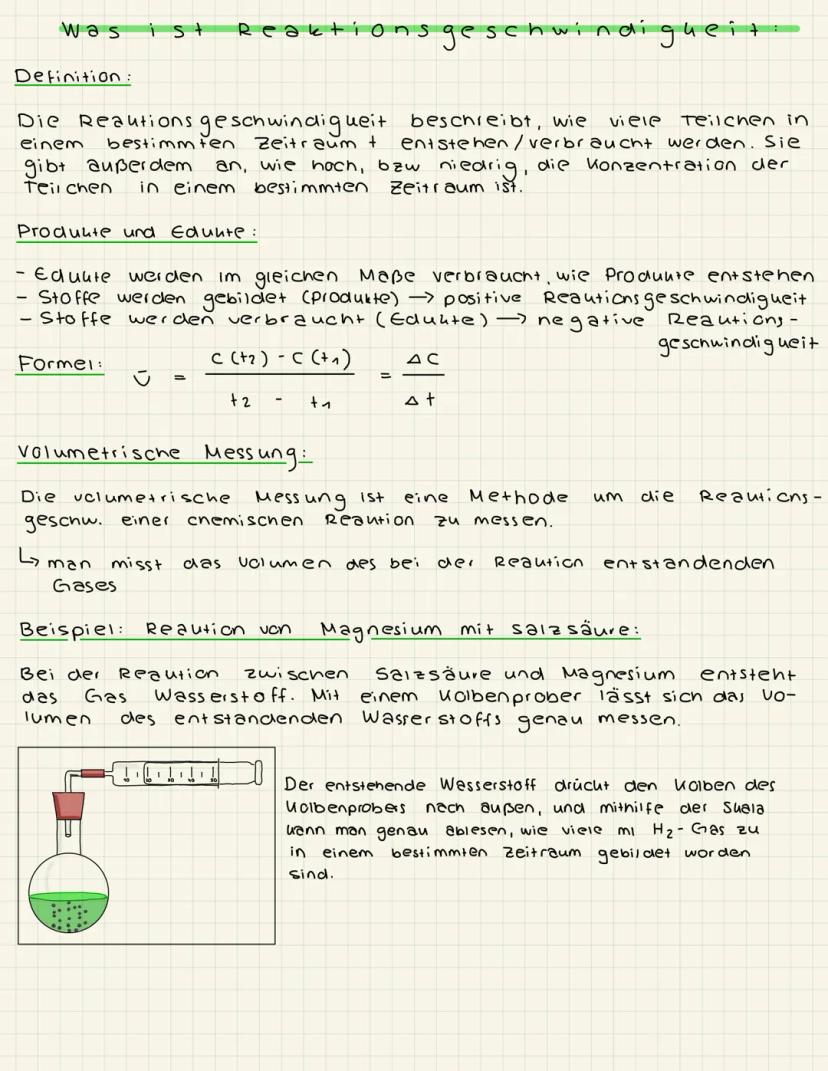 Was ist Reaktionsgeschwindigkeit:
Definition:
Die Reaktionsgeschwindigkeit beschreibt, wie viele Teilchen in
einem bestimmten Zeitraum t entstehen/verbraucht werden. Sie
gibt außerdem an, wie hoch, bzw niedrig, die Konzentration der
Teilchen in einem bestimmten Zeitraum ist.
Produkte und Edukte:
- Edukte werden im gleichen Maße verbraucht, wie Produkte entstehen
- Stoffe werden gebildet (Produkte) → positive Reaktionsgeschwindigkeit
- Stoffe werden verbraucht (Edukte) → negative Reaktions-
geschwindigkeit
Formel: ῡ = c(t₂) - c(t₁) / t₂ - t₁ = Δc / Δt
Volumetrische Messung:
Die volumetrische Messung ist eine Methode um die Reaktions-
geschw. einer chemischen Reaktion zu messen.
↳ man misst das Volumen des bei der Reaktion entstandenden
Gases
Beispiel: Reaktion von Magnesium mit Salzsäure:
Bei der Reaktion zwischen Salzsäure und Magnesium entsteht
das Gas Wasserstoff. Mit einem Kolbenprober lässt sich das Vo-
lumen des entstandenden Wasserstoffs genau messen.
10 20 30 40 50
Der entstehende Wasserstoff drückt den Kolben des
Kolbenprobers nach außen, und mithilfe der Skala
kann man genau ablesen, wie viele ml H₂-Gas zu
in einem bestimmten Zeitraum gebildet worden
sind.